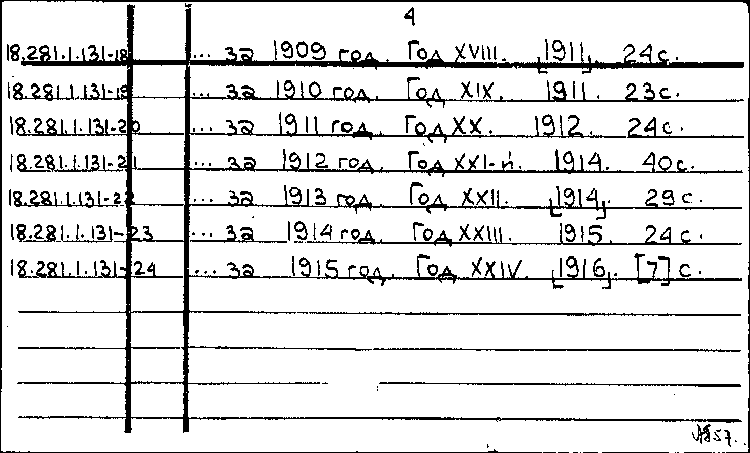 4
18.281.1.131-18 ... за 1909 год. Год XVIII. [1911]. 24 с.
18.281.1.131-19 ... за 1910 год. Год XIX. 1911. 23 с.
18.281.1.131-20 ... за 1911 год. Год XX. 1912. 24 с.
18.281.1.131-21 ... за 1912 год. Год XXI-й. 1914. 40 с.
18.281.1.131-22 ... за 1913 год. Год XXII. [1914]. 29 с.
18.281.1.131-23 ... за 1914 год. Год XXIII. 1915. 24 с.
18.281.1.131-24 ... за 1915 год. Год XXIV. [1916]. [7] с.